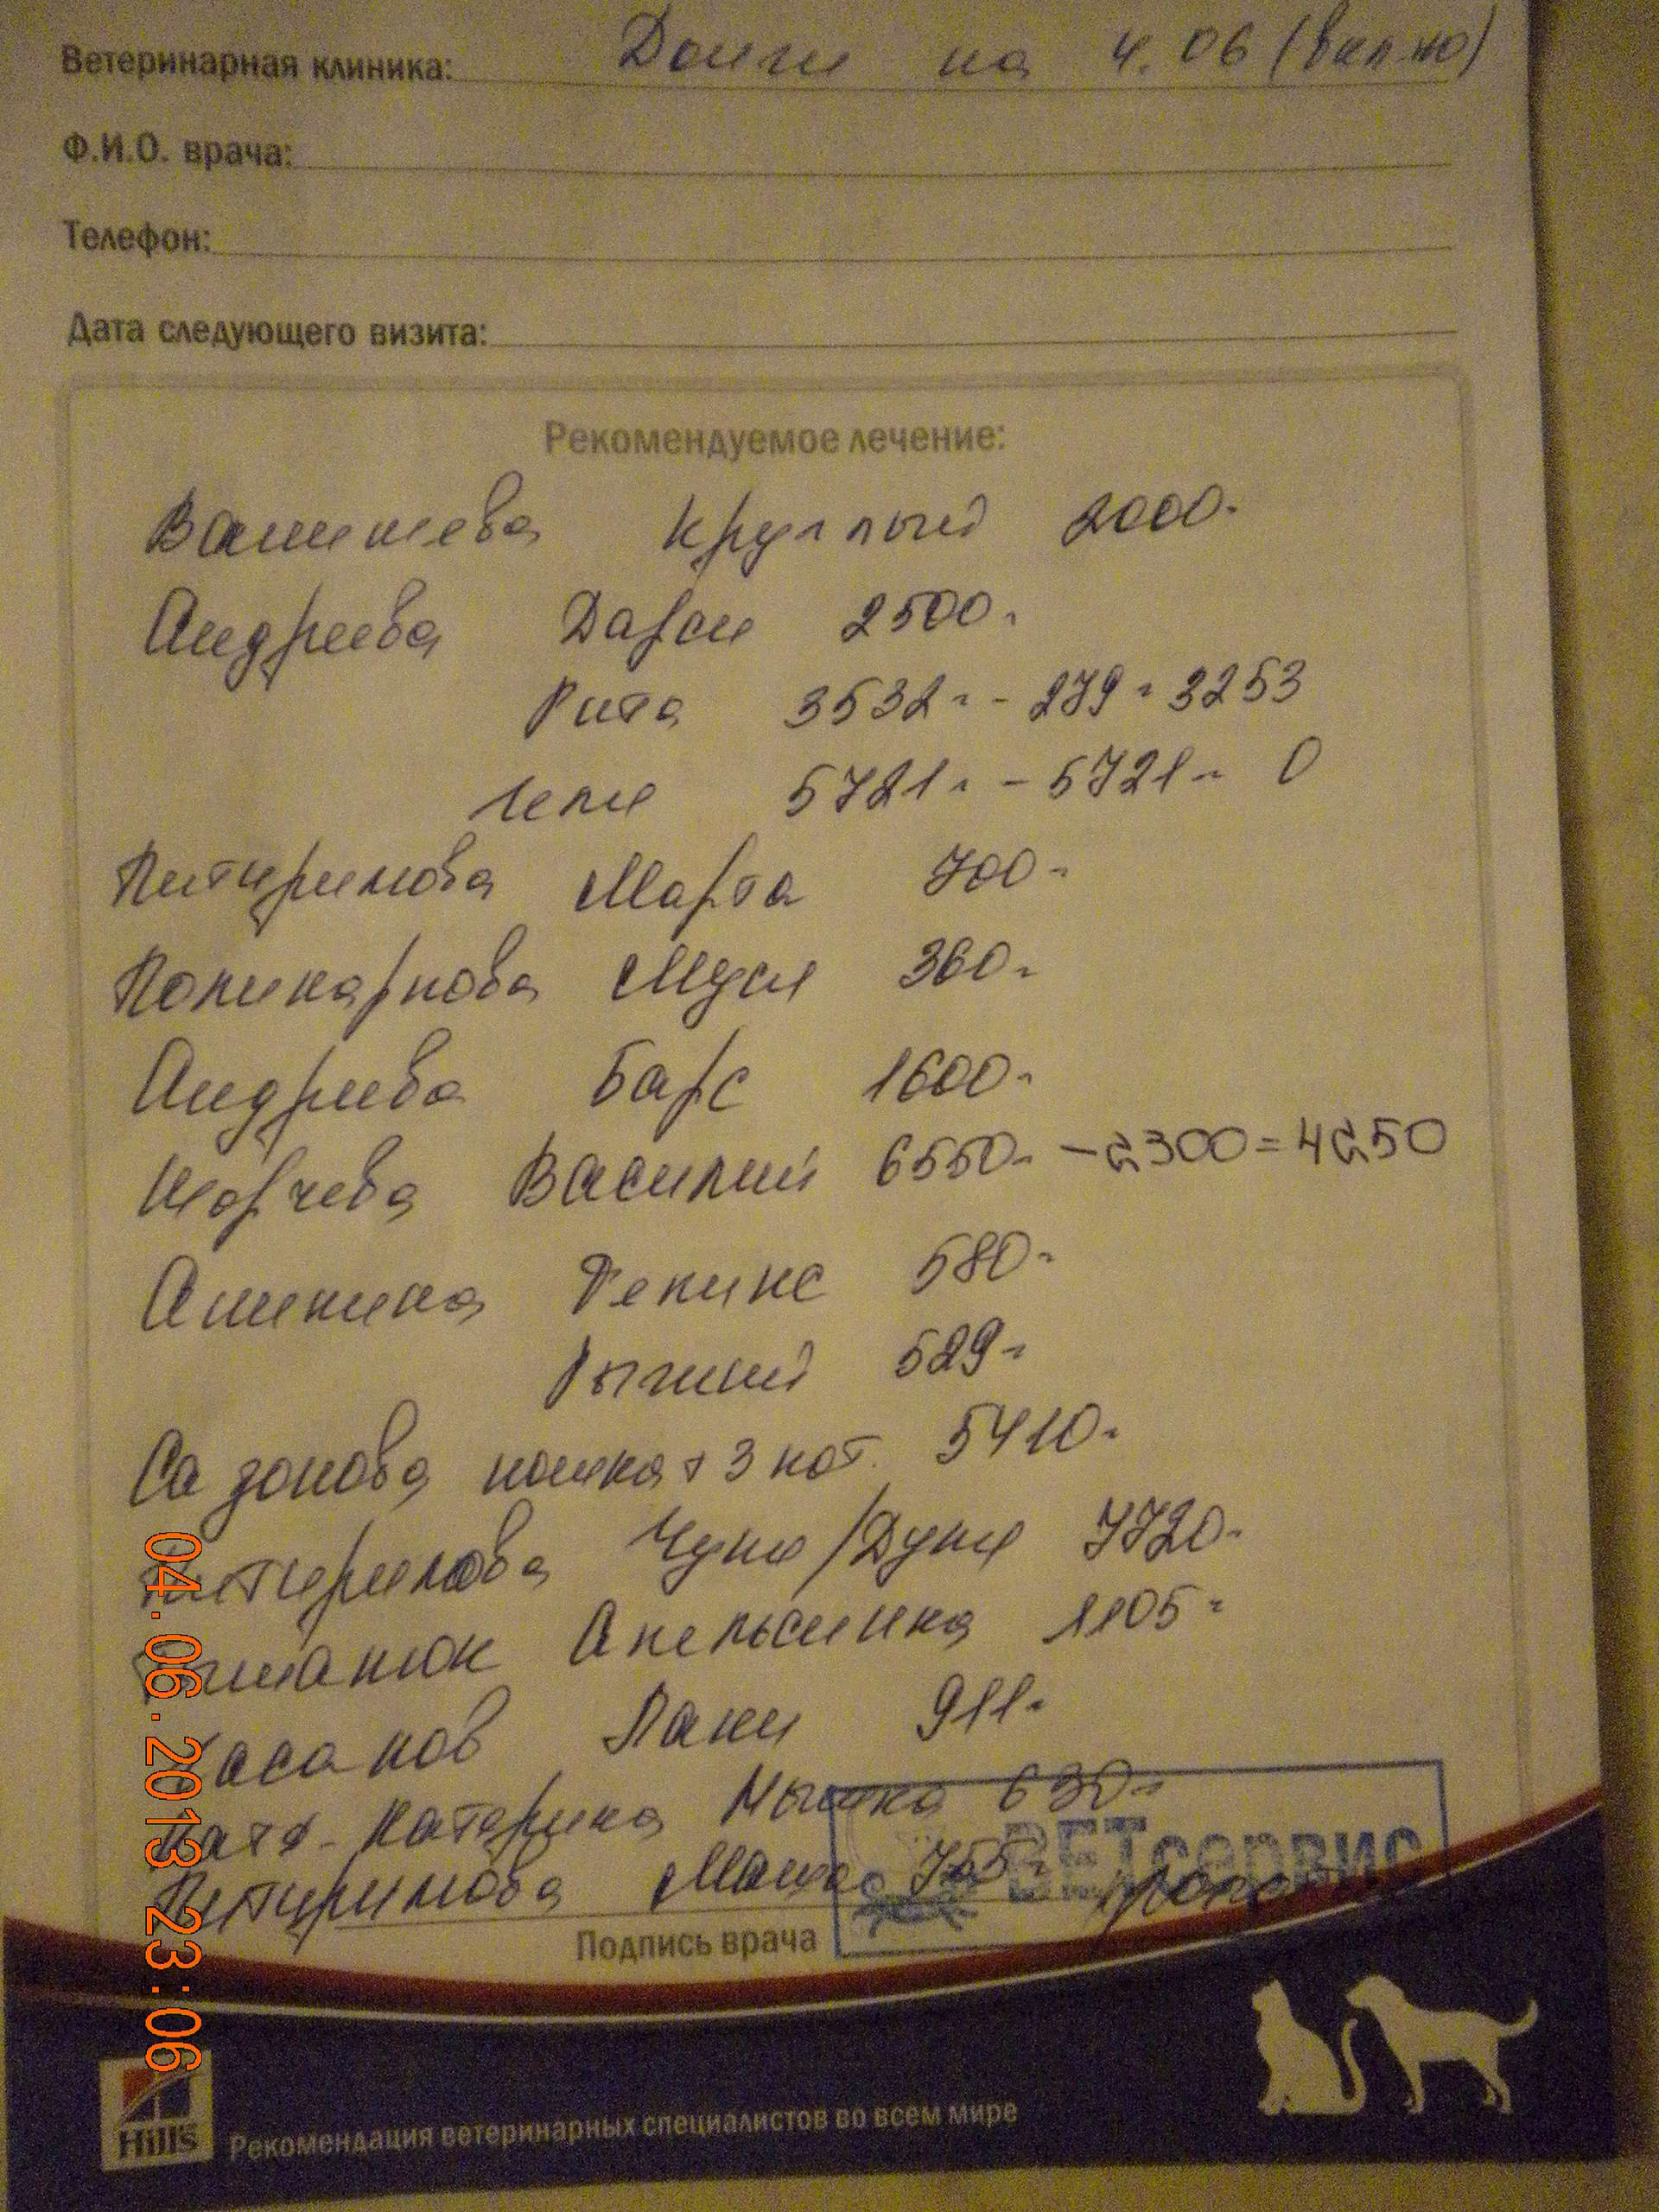 Ветеринарная клиника: Долги на 4.06 (вкл-но)
Ф.И.О. врача:
Телефон:
Дата следующего визита:
Рекомендуемое лечение:
Круглый 2000-
Андреева Дарси 2500-
Рита 3532- - 279 = 3253
5721- - 5721- 0
Питиримова Марта 700-
Поликарпова Муся 360-
Андреева Барс 1600-
Корчева Василий 6550- - 2300 = 4250
Аникина Феликс 580-
Рыжий 529-
Сазонова кошка + 3 кот. 5410-
Питиримова Чуня/Дуня 7720-
Апельсинка 1105-
Хасанов Лаки 911-
Катя-Катерина Мышка 630-
Питиримова Маша 755-
ВЕТсервис
Подпись врача
Hill's
Рекомендация ветеринарных специалистов во всем мире
04.06.2013 23:06